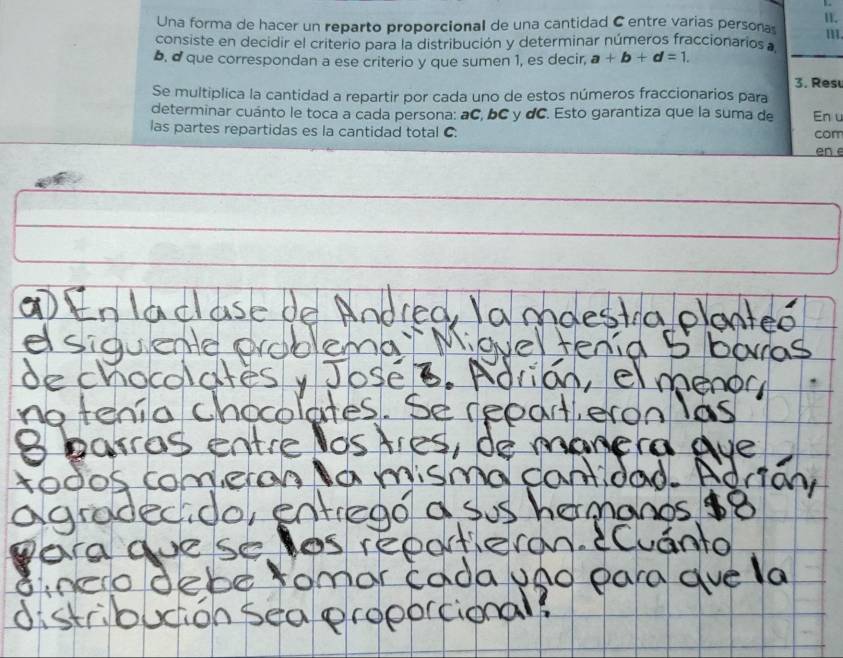 Una forma de hacer un reparto proporcional de una cantidad C entre varias personas
consiste en decidir el criterio para la distribución y determinar números fraccionarios a,
b, d que correspondan a ese criterio y que sumen 1, es decir, a + b + d = 1.
Se multiplica la cantidad a repartir por cada uno de estos números fraccionarios para
determinar cuánto le toca a cada persona: aC, bC y dC. Esto garantiza que la suma de
las partes repartidas es la cantidad total C.
II.
III.
3. Resu
En u
com
en e
a) En la clase de Andrea, la maestra planteó
el siguiente problema" Miguel tenía 5 barras
de chocolates y José 3. Adrián, el menor,
no tenía chocolates. Se repartieron las
8 barras entre los tres, de manera que
todos comieran la misma cantidad. Adrián,
agradecido, entregó a sus hermanos $8
para que se los repartieran. ¿Cuánto
dinero debe tomar cada uno para que la
distribución sea proporcional?